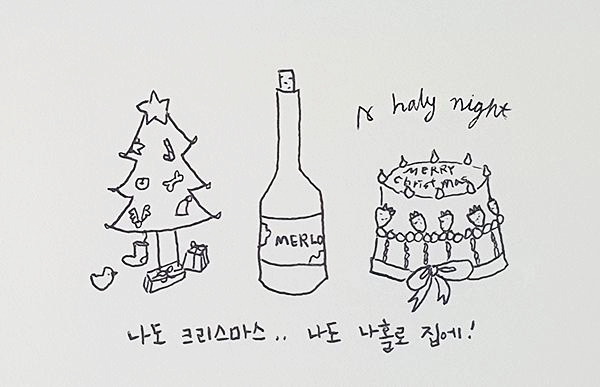 holy night
MERRY
Christmas
MERLO
나도 크리스마스.. 나도 나홀로 집에!